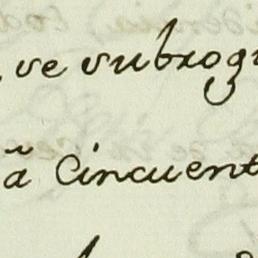 , se subrog
ã Cincuent